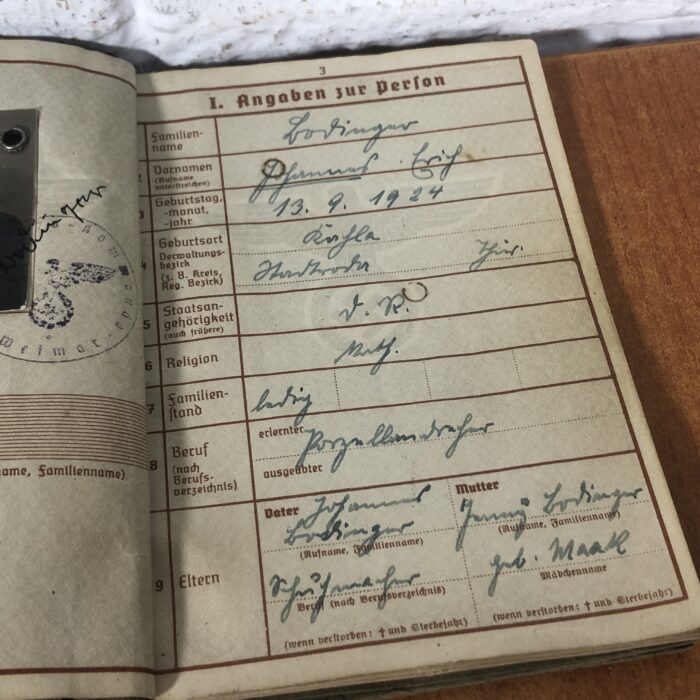 3
I. Angaben zur Person
Familien-
name
Bodinger
Vornamen
(Rufname
unterstreichen)
Johannes Erich
Geburtstag,
-monat,
-jahr
13. 9. 1924
4
Geburtsort
Verwaltungs-
bezirk
(z. B. Kreis,
Reg. Bezirk)
Kahla
Stadtroda Thür.
5
Staatsan-
gehörigkeit
(auch frühere)
D. R.
6
Religion
7
Familien-
stand
ledig
8
Beruf
(nach
Berufs-
verzeichnis)
erlernter
Porzellandreher
ausgeübter
9
Eltern
Vater Johannes
Bodinger
(Rufname, Familienname)
Schuhmacher
Beruf (nach Berufsverzeichnis)
(wenn verstorben: † und Sterbejahr)
Mutter
Jenny Bodinger
(Rufname, Familienname)
geb. Maak
Mädchenname
(wenn verstorben: † und Sterbejahr)
Bodinger
Weimar
ame, Familienname)